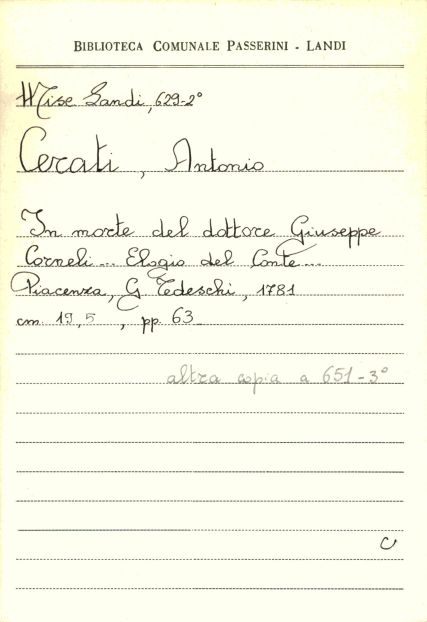 BIBLIOTECA COMUNALE PASSERINI - LANDI
Misc Landi, 629-2°
Cerati, Antonio
In morte del dottore Giuseppe
Corneli... Elogio del Conte...
Piacenza, G Tedeschi, 1781
cm 19,5, pp. 63
altra copia a 651-3°
C